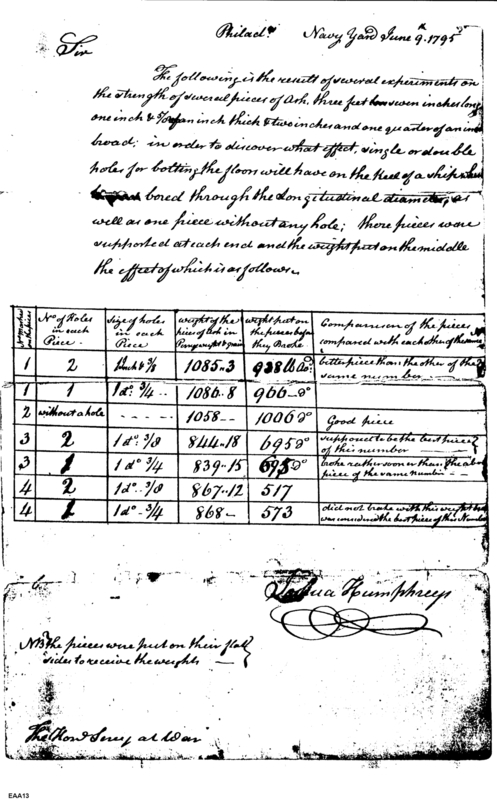 Philada. Navy Yard June 9th. 1795
Sir
The following is the result of several experiments on
the strength of several pieces of Ash, three feet seven inches long
one inch & an inch thick & two inches and one quarter of an inch
broad; in order to discover what effect, single or double
holes for bolting the floors will have on the Keel of a ship
bored through the Longitudinal diameter, as
well as one piece without any hole; these pieces were
supported at each end and the weight put on the middle
the effect of which is as follows
No. marked on the pieces | No of Holes in each Piece | Size of holes in each Piece | weight of the pieces of Ash in Penny weight & grains | weight put on the pieces before they Broke | Comparison of the pieces compared with each other of the same No.
1 | 2 | 1 inch & 3/8 | 1085..3 | 938 lb | better piece than the other of the same number
1 | 1 | 1 do. 3/4 | 1086..8 | 966 do
2 | without a hole | - - - - | 1058 - - | 1006 do | Good piece
3 | 2 | 1 do. 3/8 | 844..18 | 695 do | supposed to be the best piece of this number
3 | 1 | 1 do. 3/4 | 839..15 | 695 do | broke rather sooner than the above piece of the same number
4 | 2 | 1 do. 3/8 | 867..12 | 517
4 | 1 | 1 do. 3/4 | 868 - | 573 | did not broke with this weight but was considered the best piece of this Number
Joshua Humphreys
NB the pieces were put on their flat
sides to receive the weights
The Honl. Secry at War
EAA13